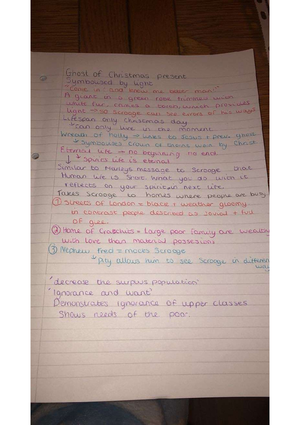 Ghost of Christmas present
Symbolised by light
"Come in! and know me better man!"
A giant in a green robe trimmed with
white fur, carries a torch which produces
light → so Scrooge can see
lifespan only Christmas day
↳ can only live in the moment
Wreath of Holly → links to Jesus + green
↳ Symbolises crown of thorns worn by Christ
Eternal life → no beginning no end
↳ Spirits life is eternal
Similar to Marleys message to Scrooge that
Human life is short what you do with it
reflects on your spirit in next life.
Takes Scrooge to homes where people are busy
① Streets of London → black + weather gloomy
in contrast people described as jovial + full
of glee.
② Home of Cratchits → Large poor family are wealthy
with love than material possessions
③ Nephew Fred → moves Scrooge
↳ Pity allows him to see Scrooge in different
way
"decrease the surplus population"
"Ignorance and want"
Demonstrates ignorance of upper classes
Shows needs of the poor.